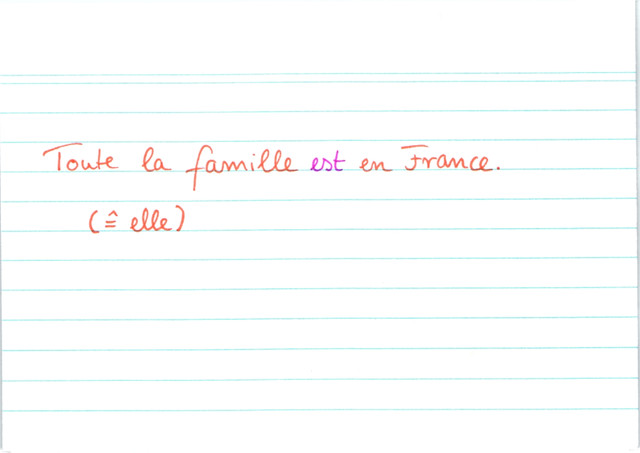 Toute la famille est en France.
(≙ elle)